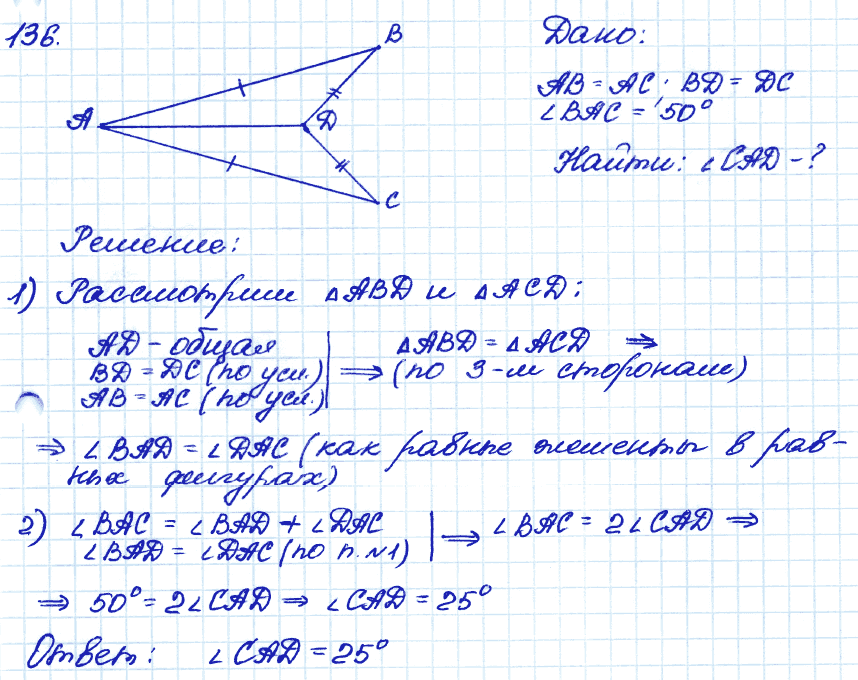 136.
B
Дано:
A
D
C
AB = AC; BD = DC
∠BAC = 50°
Найти: ∠CAD - ?
Решение:
1) Рассмотрим ΔABD и ΔACD:
AD - общая
BD = DC (по усл.)
AB = AC (по усл.)
⇒
ΔABD = ΔACD ⇒
(по 3-м сторонам)
⇒ ∠BAD = ∠DAC (как равные элементы в рав-
ных фигурах)
2) ∠BAC = ∠BAD + ∠DAC
∠BAD = ∠DAC (по п. №1)
⇒ ∠BAC = 2∠CAD ⇒
⇒ 50° = 2∠CAD ⇒ ∠CAD = 25°
Ответ: ∠CAD = 25°